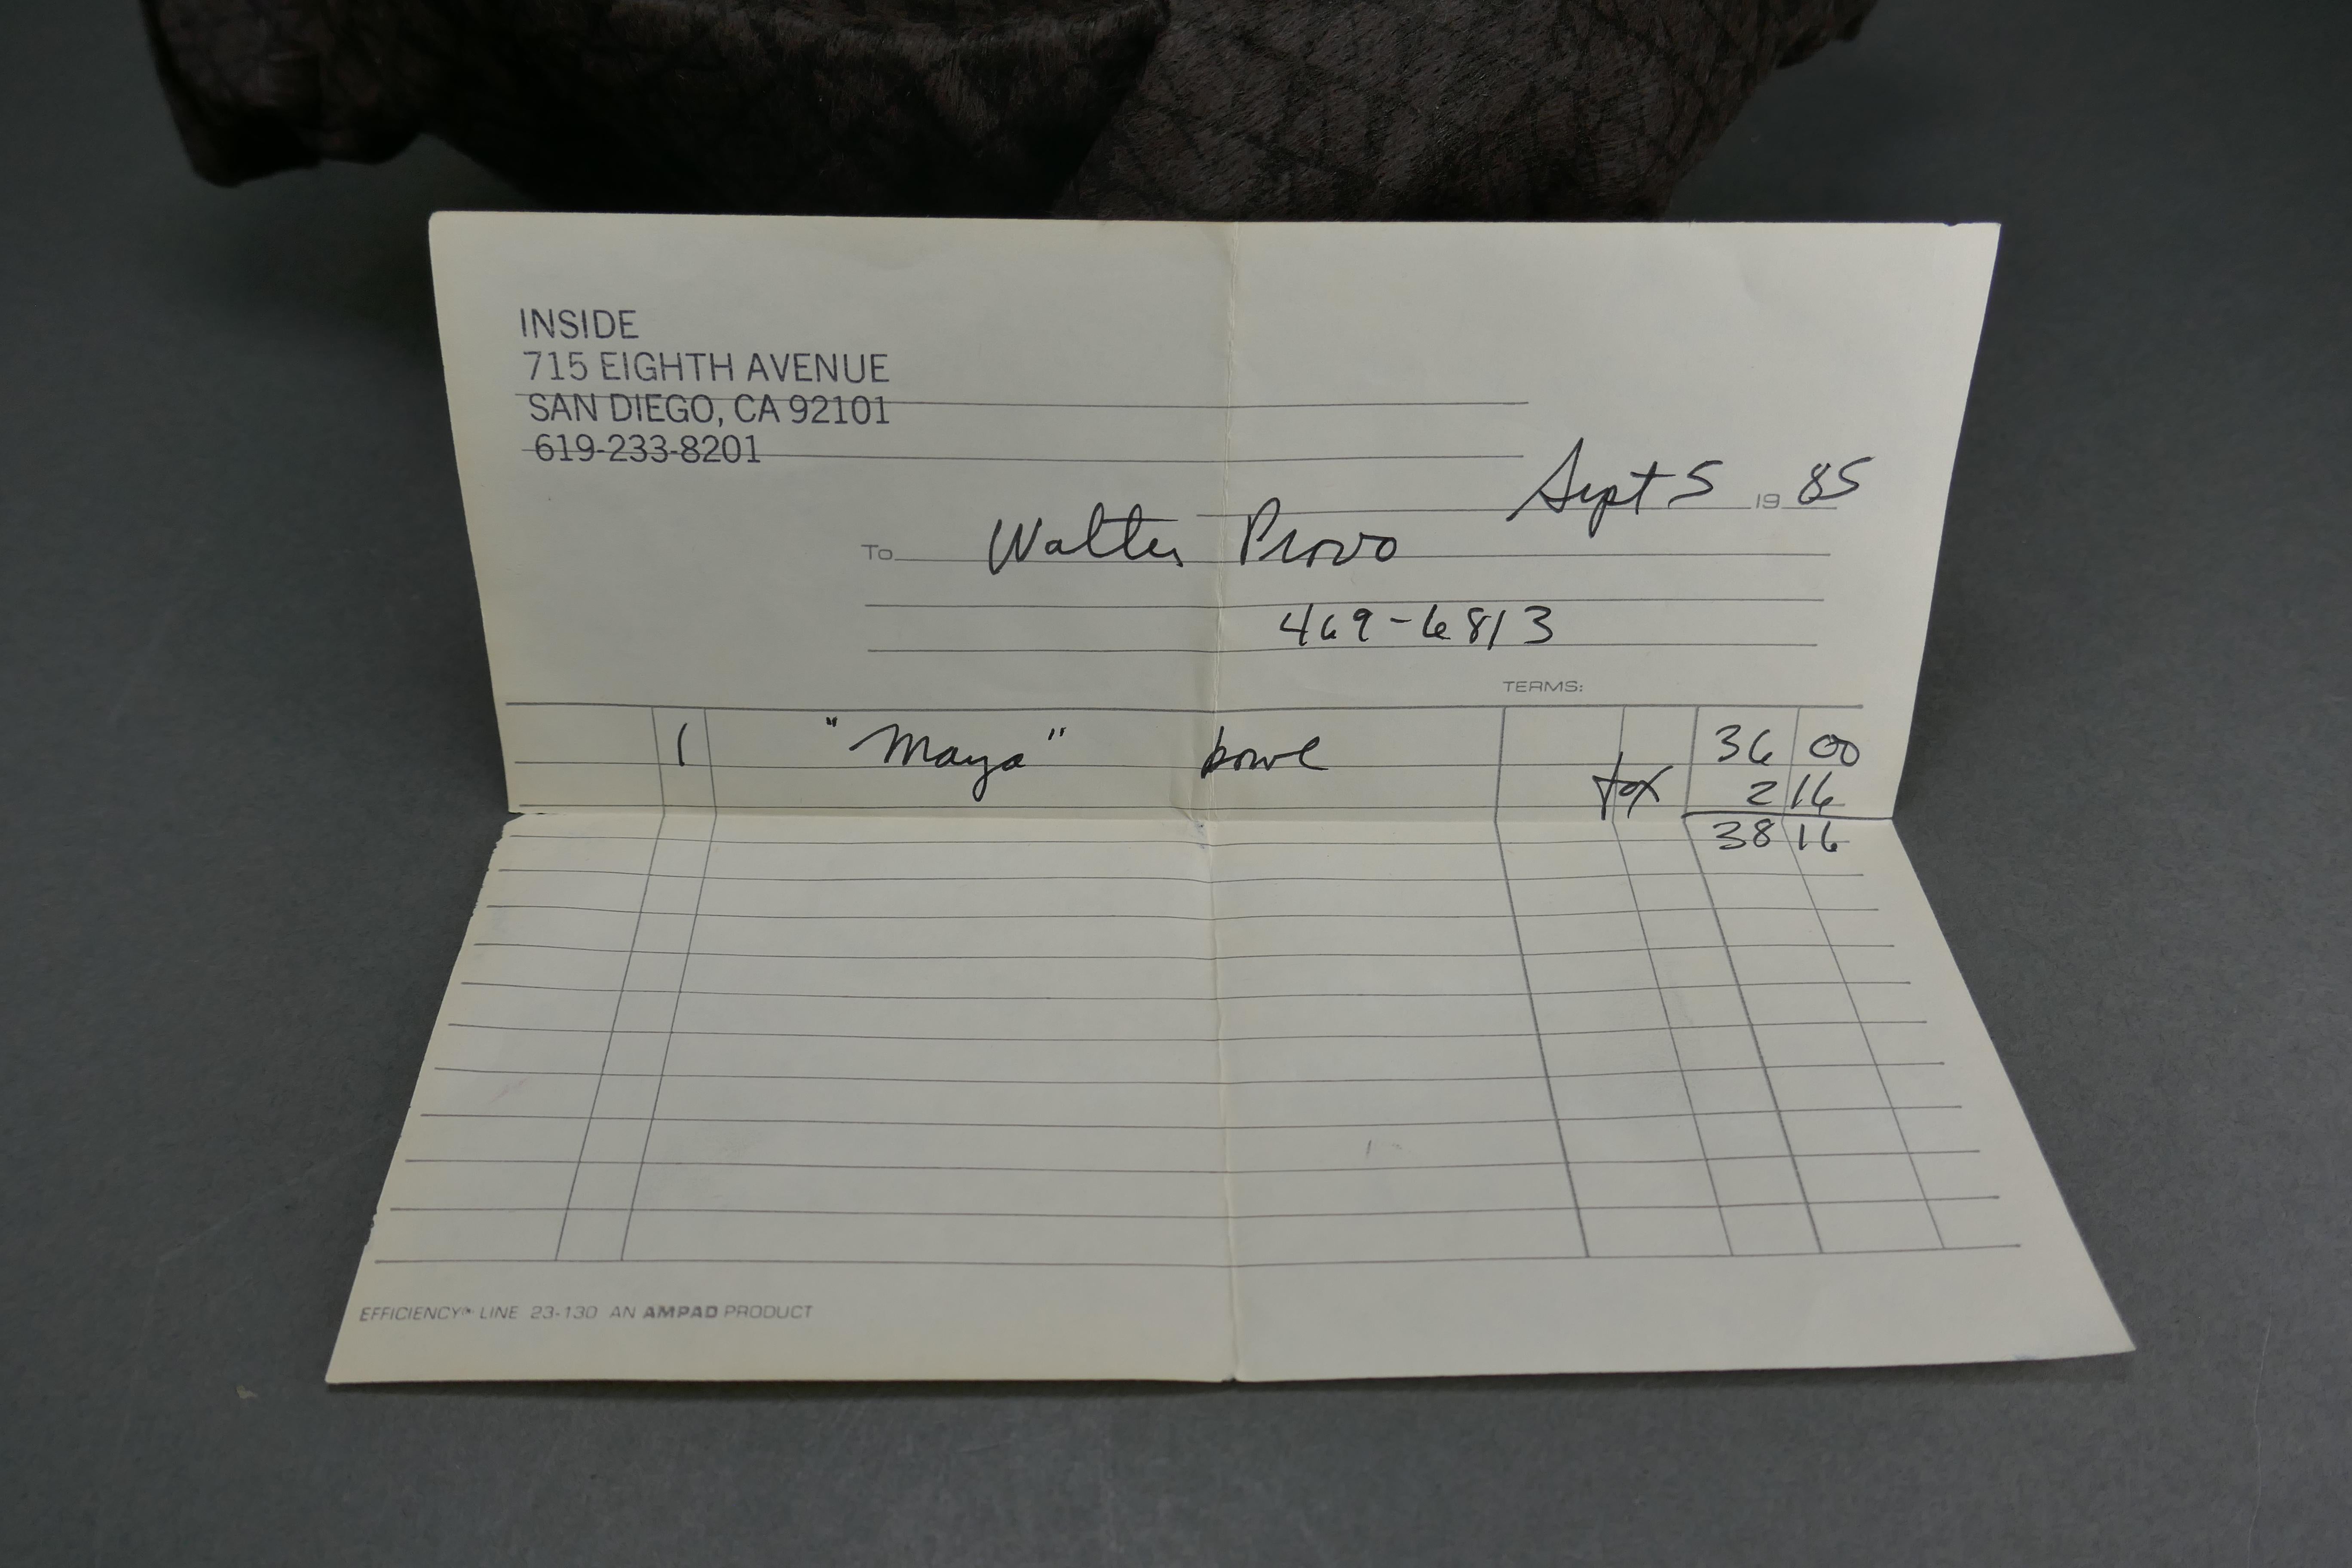 INSIDE
715 EIGHTH AVENUE
SAN DIEGO, CA 92101
619-233-8201
Sept 5 19 85
To Walter Provo
469-6813
TERMS:
1 "Maya" bowl 36 00
tax 2 16
38 16
EFFICIENCY® LINE 23-130 AN AMPAD PRODUCT